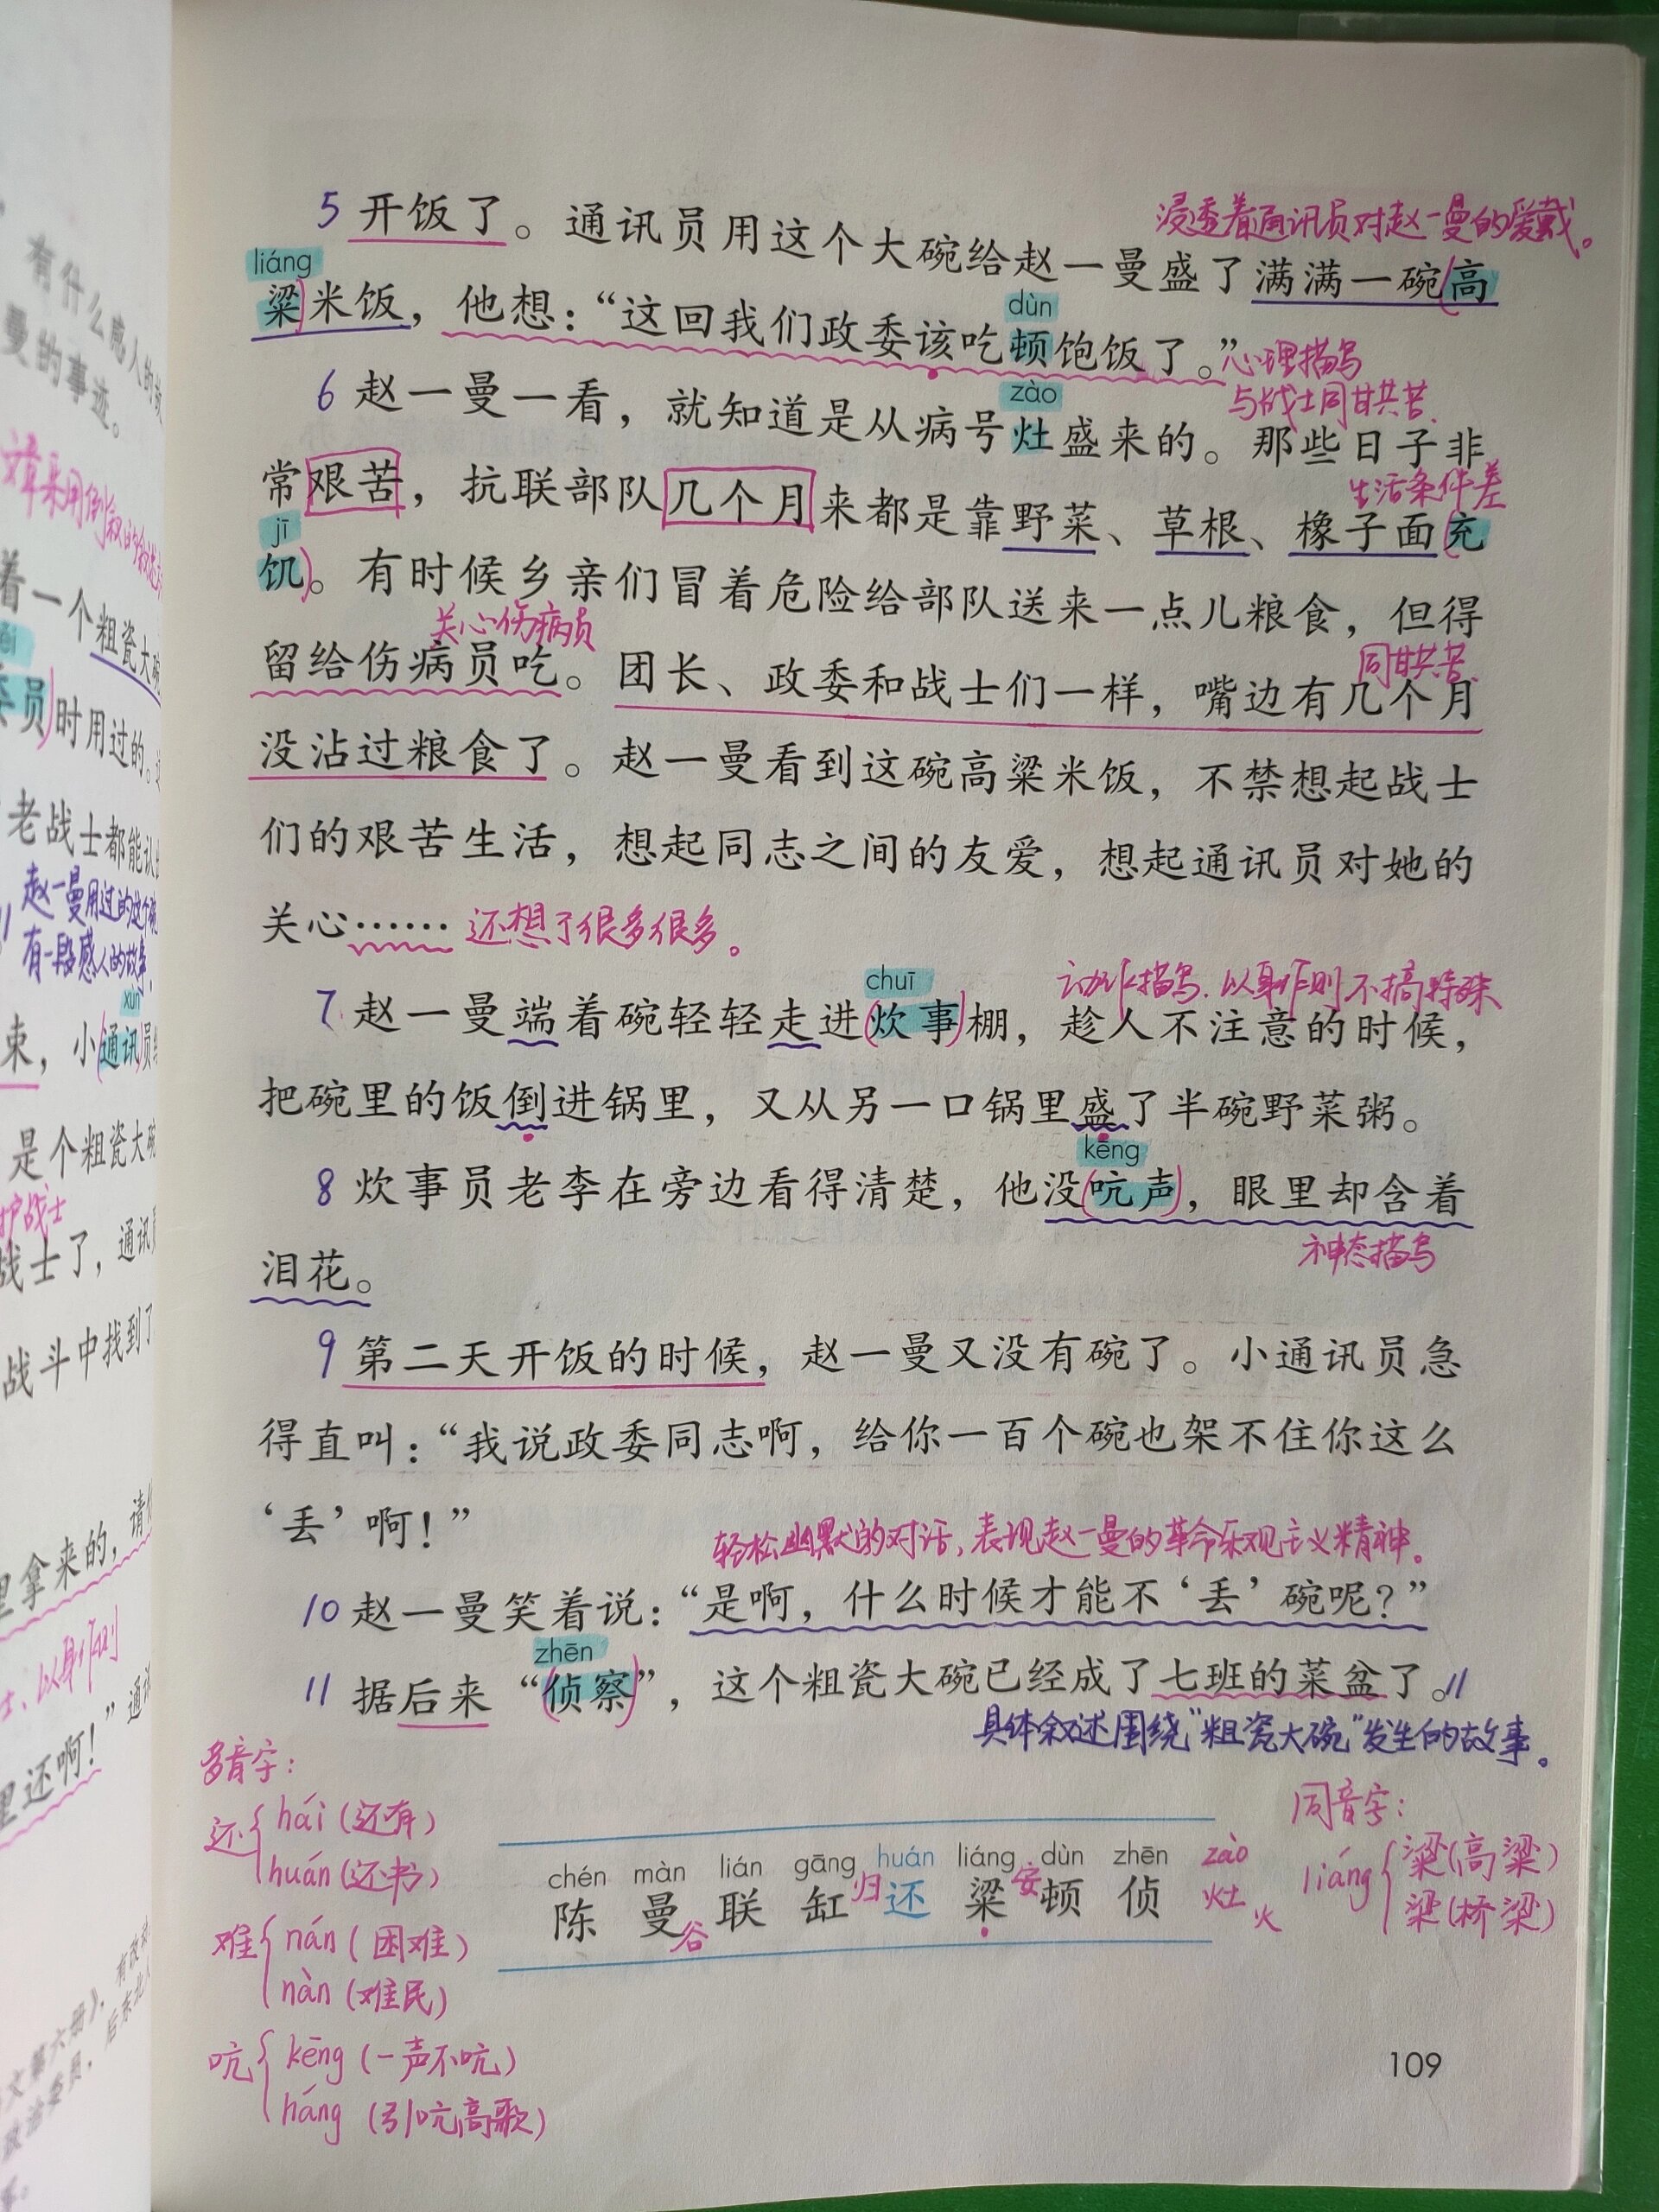 有什么感人的
曼的事迹。
着一个粗瓷大碗
员时用过的。
老战士都能认
赵一曼用过的这个碗
有一段感人的故事.
xùn
束，小通讯员
是个粗瓷大碗
护战士
战士了，通讯员
战斗中找到了
里拿来的，请
以身作则
里还啊！”通讯
浸透着通讯员对赵一曼的爱戴。
5 开饭了。通讯员用这个大碗给赵一曼盛了满满一碗高
liáng
粱米饭，他想：“这回我们政委该吃顿饱饭了。”
dùn
心理描写
与战士同甘共苦.
6 赵一曼一看，就知道是从病号灶盛来的。那些日子非
zào
常艰苦，抗联部队几个月来都是靠野菜、草根、橡子面充
生活条件差
jī
饥。有时候乡亲们冒着危险给部队送来一点儿粮食，但得
关心伤病员
留给伤病员吃。团长、政委和战士们一样，嘴边有几个月
同甘共苦.
没沾过粮食了。赵一曼看到这碗高粱米饭，不禁想起战士
们的艰苦生活，想起同志之间的友爱，想起通讯员对她的
关心…… 还想了很多很多。
chuī
动作描写.以身作则不搞特殊
7 赵一曼端着碗轻轻走进炊事棚，趁人不注意的时候，
把碗里的饭倒进锅里，又从另一口锅里盛了半碗野菜粥。
kēng
8 炊事员老李在旁边看得清楚，他没吭声，眼里却含着
泪花。
神态描写
9 第二天开饭的时候，赵一曼又没有碗了。小通讯员急
得直叫：“我说政委同志啊，给你一百个碗也架不住你这么
‘丢’啊！”
轻松幽默的对话,表现赵一曼的革命乐观主义精神。
10 赵一曼笑着说：“是啊，什么时候才能不‘丢’碗呢？”
zhēn
11 据后来“侦察”，这个粗瓷大碗已经成了七班的菜盆了。//
具体叙述围绕“粗瓷大碗”发生的故事。
多音字:
还 hái (还有)
huán (还书)
难 nán (困难)
nàn (难民)
吭 kēng (一声不吭)
háng (引吭高歌)
chén màn lián gāng huán liáng dùn zhēn zào
陈 曼 联 缸 归 还 粱 安 顿 侦 灶
谷 火
同音字:
liáng 粱(高粱)
梁(桥梁)
109